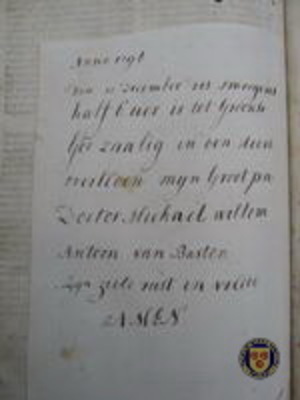 Anno
Den december des smorgens
half 6 uer is tot
zaalig in den
overleden myn Groot pa
Docter Michael willem
Antoon van Basten
zyn ziele rust in vrede
AMEN